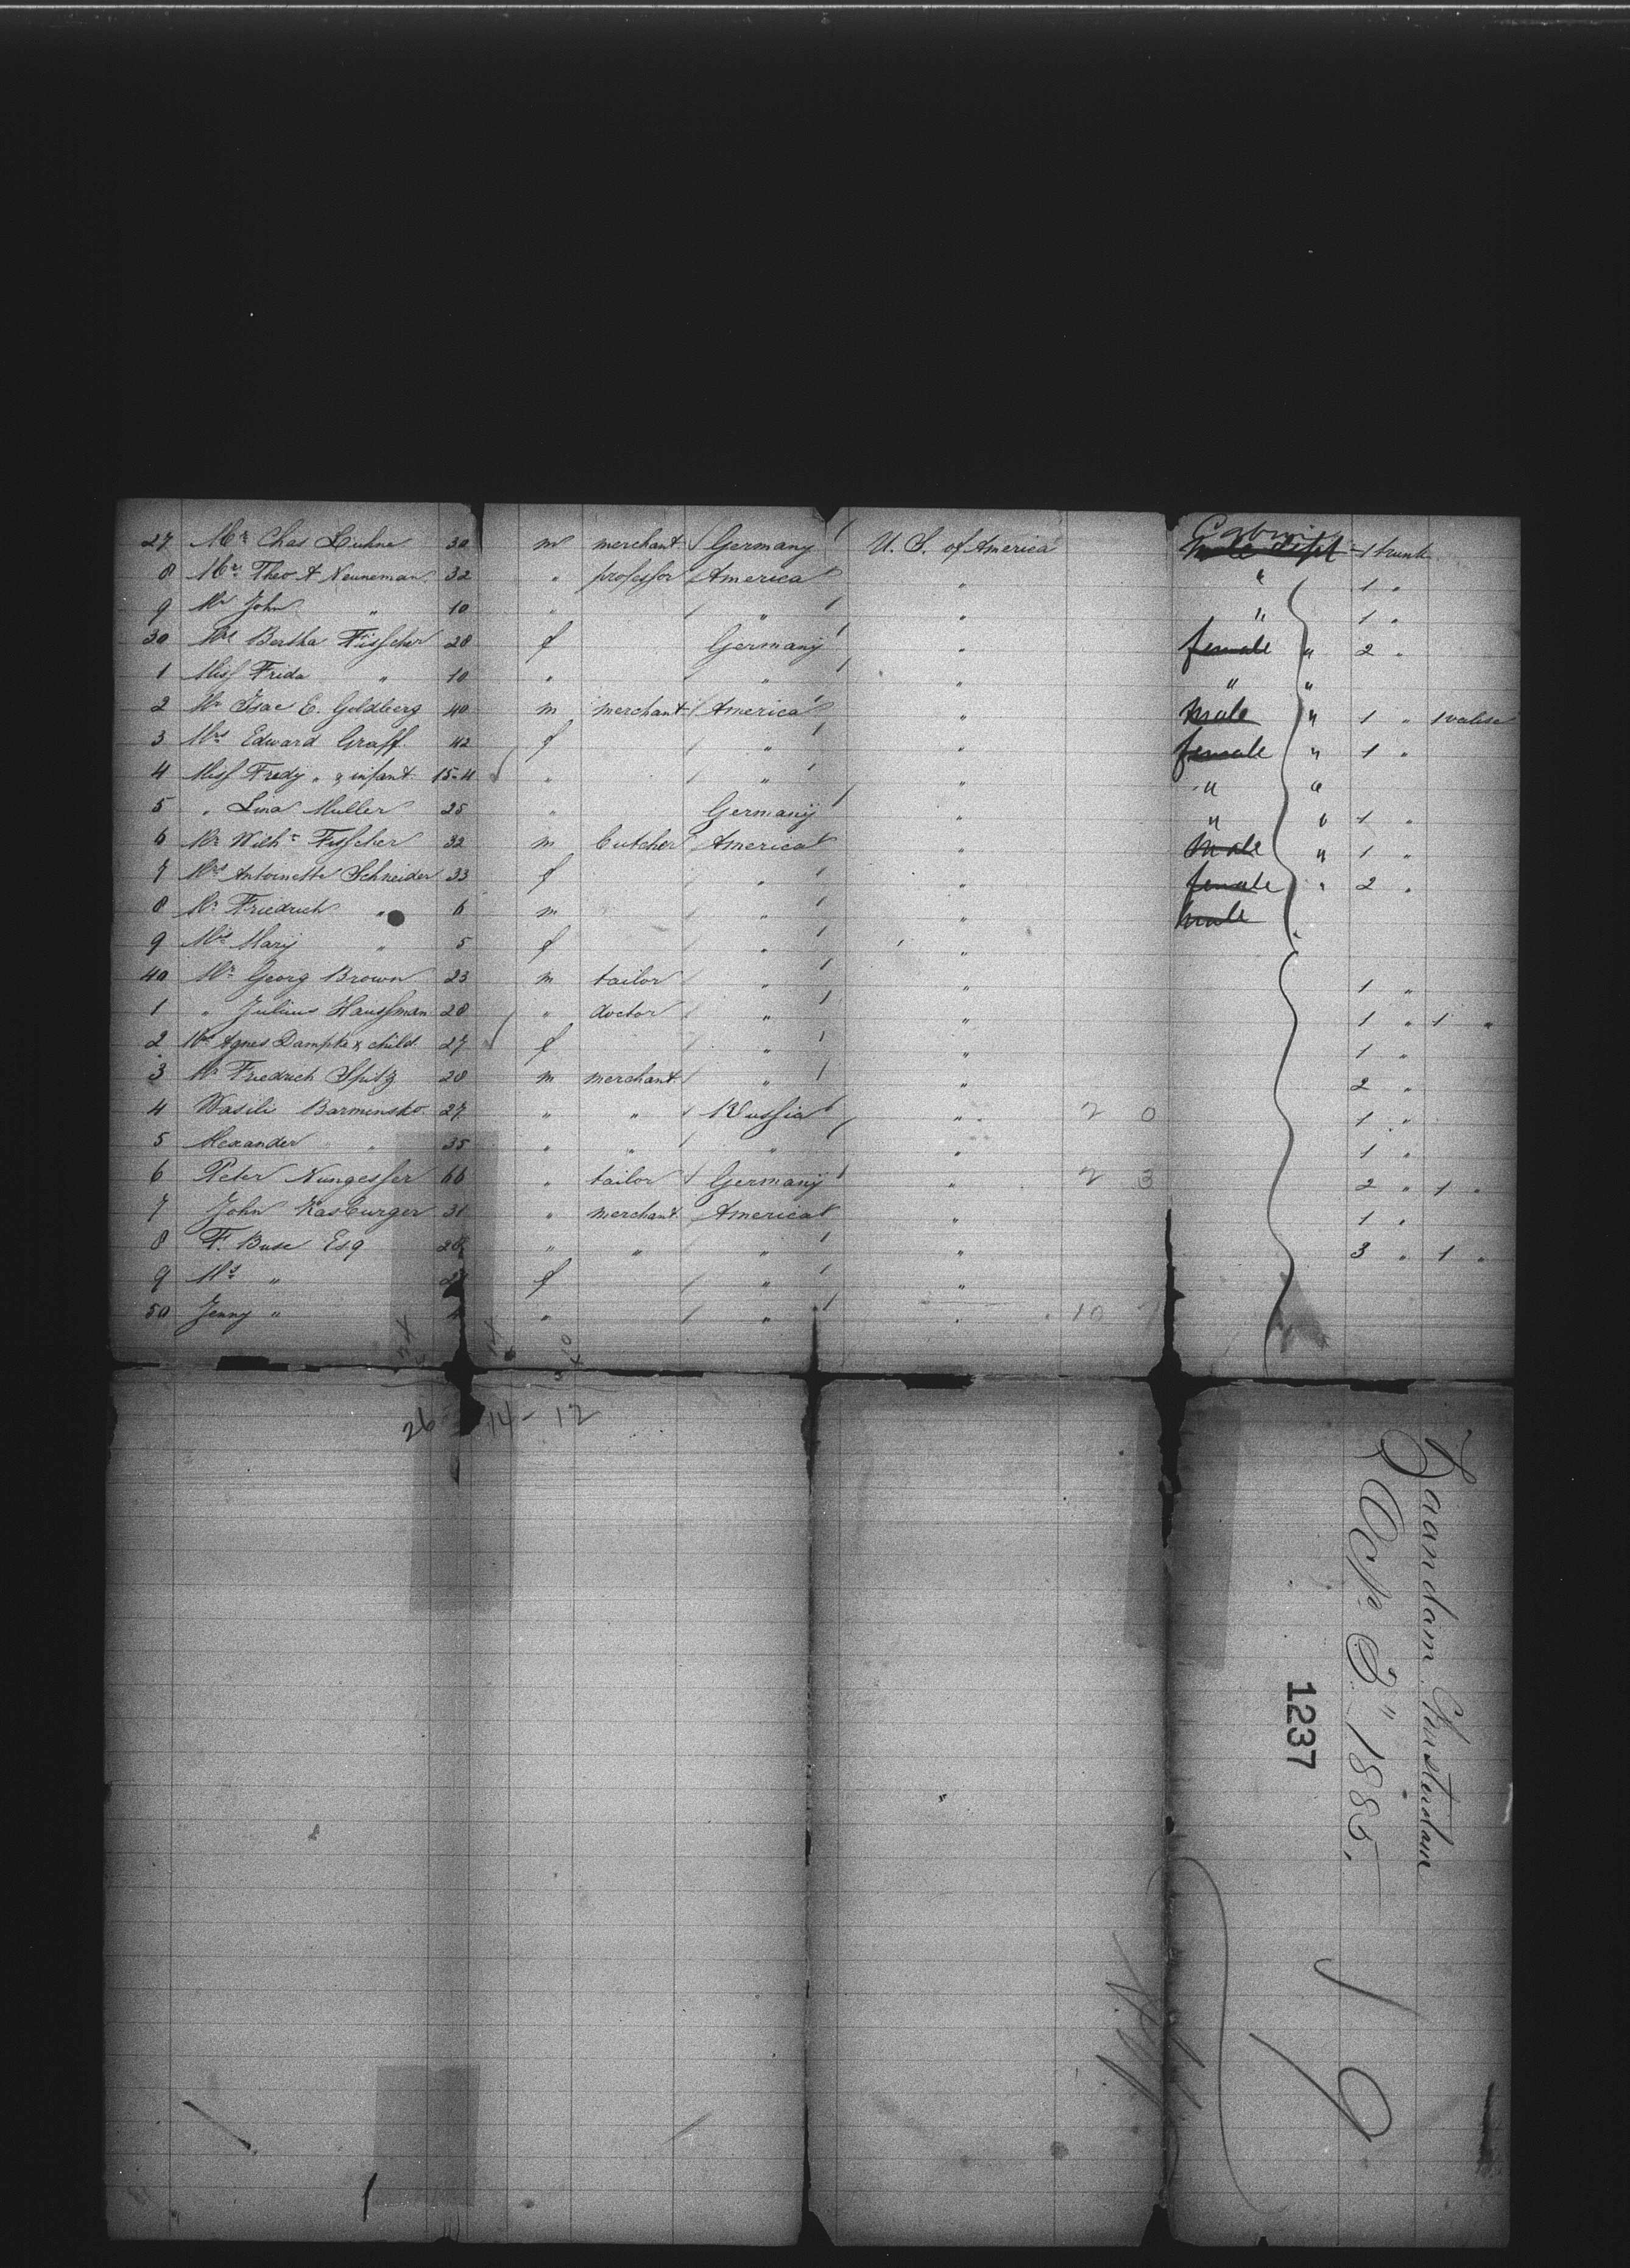 27 Mr Chas Luhne 30 m merchant Germany U. S. of America Cabin male dept 1 trunk
8 Mr Theo A Neuneman 32 " professor America " " 1 "
9 Mr John " 10 " " " " 1 "
30 Mrs Bertha Fisscher 28 f Germany " female " 2 "
1 Miss Frida " 10 " " " " "
2 Mr Isac E. Goldberg 40 m merchant America " male " 1 " 1 valise
3 Mrs Edward Graff. 42 f " " female " 1 "
4 Miss Fredy " & infant 15-11 " " " " "
5 " Lina Muller 25 " Germany " " " 1 "
6 Mr Wilhm Fisscher 32 m butcher America " male " 1 "
7 Mrs Antoinette Schneider 33 f " " female " 2 "
8 Mr Friedrich " 6 m " " male
9 Mis Mary " 5 f " "
40 Mr Georg Brown 23 m tailor " " 1 "
1 " Julius Haussman 28 " doctor " " 1 " 1 "
2 Mrs Agnes Dampke & child 27 f " " 1 "
3 Mr Friedrich Spitz 28 m merchant " " 2 "
4 Wasili Barminsko 27 " " Russia " 2 0 1 "
5 Alexander " 35 " " " " 1 "
6 Peter Nungesser 66 " tailor Germany " 2 3 2 " 1 "
7 John Kasburger 31 " merchant America " 1 "
8 F. Buse Esq 28 " " " " 3 " 1 "
9 Mrs " 27 f " "
50 Jenny " 4 " " " 10 7
26 14 - 12
Zaandam Amsterdam
Octr 3" 1885.
1237
19